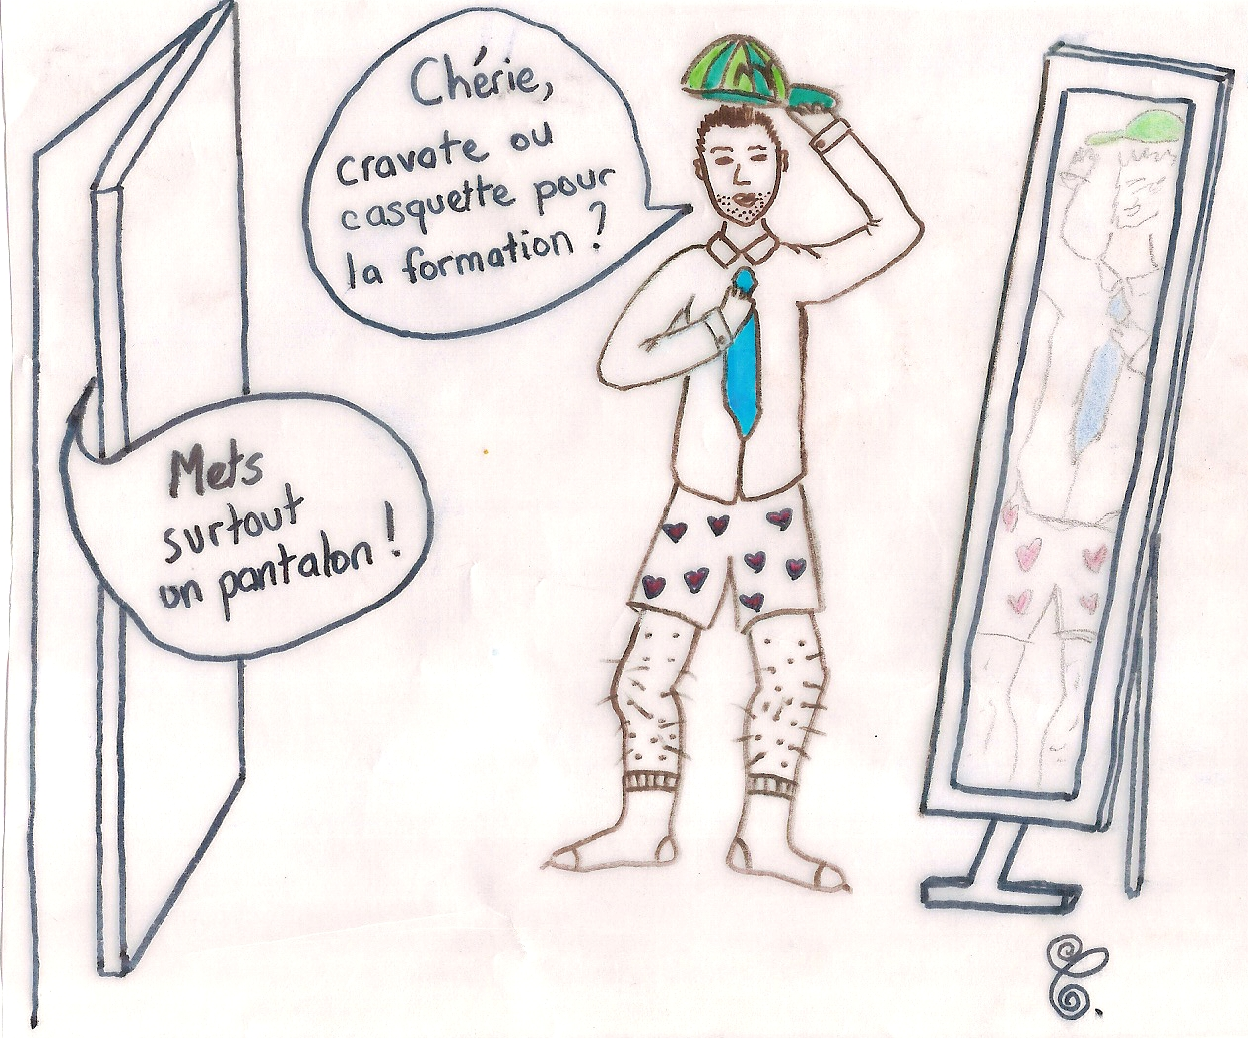 Chérie,
cravate ou
casquette pour
la formation ?
Mets
surtout
un pantalon !